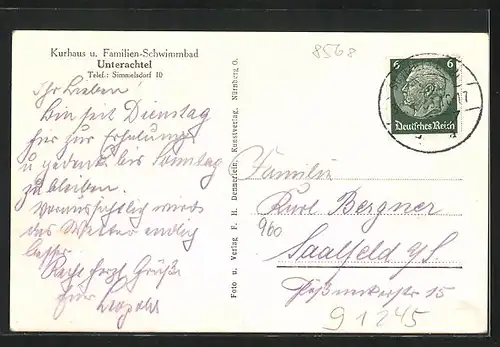 Kurhaus u. Familien-Schwimmbad
Unterachtel
Telef.: Simmelsdorf 10
Ihr Lieben!
Bin seit Dienstag
hier zur Erholung
u. gedenke bis Sonntag
zu bleiben.
Voraussichtlich wird
das Wetter endlich
besser.
Recht herzl. Grüße
Foto u. Verlag F. H. Dennerlein, Kunstverlag, Nürnberg O.
8568
6 6
Deutsches Reich
17
Familie
Kurt Bergner
960
Saalfeld a/S.
15
91245